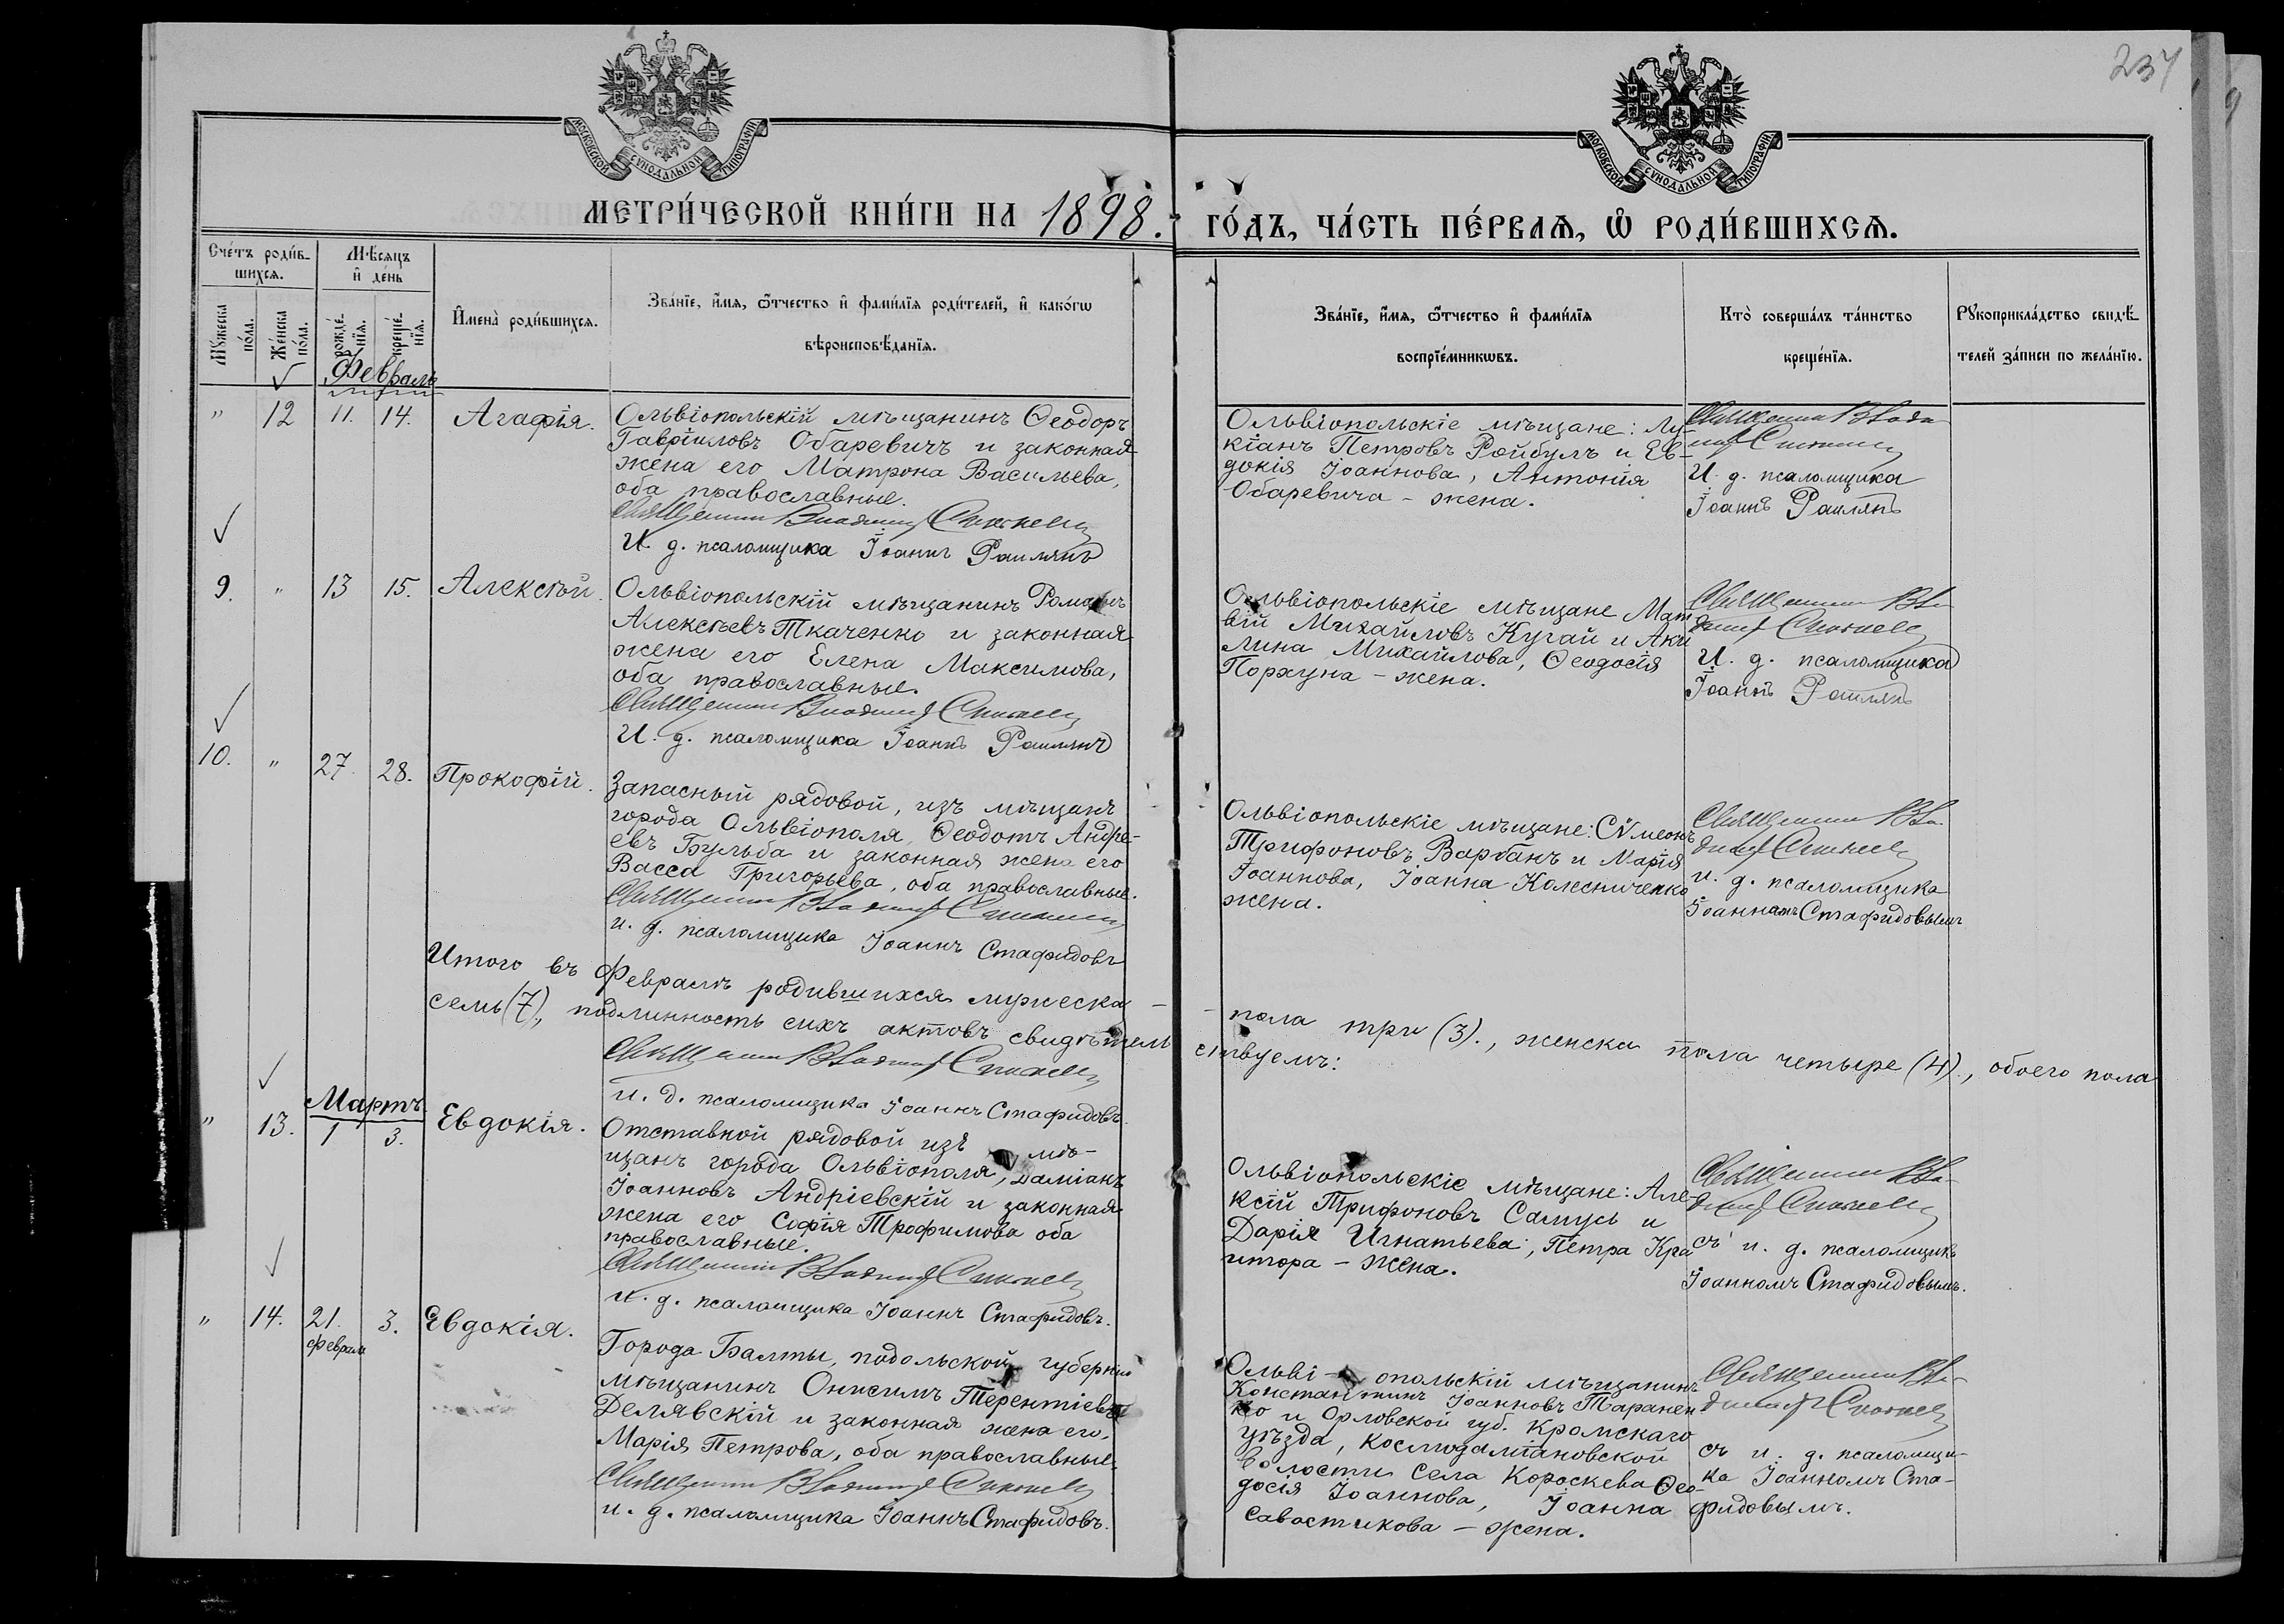 237
МОСКОВСКОЙ СѴНОДАЛЬНОЙ ТИПОГРАФІИ
МОСКОВСКОЙ СѴНОДАЛЬНОЙ ТИПОГРАФІИ
МЕТРИ́ЧЕСКОЙ КНИ́ГИ НА 1898. ГО́ДЪ, ЧА́СТЬ ПЕ́РВАЯ, Ѡ҆ РОДИ́ВШИХСѦ.
Сче́тъ роди́в-
шихсѧ.
Мѣ́сяцъ
и҆ де́нь
Мꙋ́жеска
по́ла.
Же́нска
по́ла.
рожде́-
нїѧ.
креще́-
нїѧ.
И҆мена̀ роди́вшихсѧ.
Зва́нїе, и҆́мѧ, ѻ҆́тчество и҆ фами́лїѧ роди́телей, и҆ како́гѡ
вѣроисповѣ́данїѧ.
Зва́нїе, и҆́мѧ, ѻ҆́тчество и҆ фами́лїѧ
воспрїе́мникѡвъ.
Кто̀ соверша́лъ та́инство
креще́нїѧ.
Рꙋкоприкла́дство свидѣ́-
телей за́писи по жела́нїю.
Февраль
" 12 11. 14. Агафія.
Ольвіопольскій мѣщанинъ Ѳеодоръ
Гавріиловъ Обаревичъ и законная
жена его Матрона Васильева,
оба православные.
Священникъ Владимір
И. д. псаломщика Іоаннъ Раилянъ
Ольвіопольскіе мѣщане: Лу-
кіанъ Петровъ Ройбулъ и Ев-
докія Іоаннова, Антонія
Обаревича - жена.
Священникъ Влади
мір
И. д. псаломщика
Іоаннъ Раилянъ
9. " 13 15. Алексѣй.
Ольвіопольскій мѣщанинъ Романъ
Алексѣевъ Ткаченко и законная
жена его Елена Максимова,
оба православные.
Священникъ Владимір
И. д. псаломщика Іоаннъ Раилянъ
Ольвіопольскіе мѣщане Мат
вій Михайловъ Кугай и Аки
лина Михайлова, Ѳеодосія
Порхуна - жена.
Священникъ Вла
димір
И. д. псаломщика
Іоаннъ Раилянъ
10. " 27. 28. Прокофій.
Запасный рядовой, изъ мѣщанъ
города Ольвіополя, Ѳеодотъ Андре-
евъ Бульба и законная жена его
Васса Григорьева, оба православные.
Священникъ Владимір
и. д. псаломщика Іоаннъ Стафидовъ
Ольвіопольскіе мѣщане: Сѵмеонъ
Трифоновъ Варбанъ и Марія
Іоаннова, Іоанна Колесниченко
жена.
Священникъ Вла-
димір
и. д. псаломщика
Іоанномъ Стафидовымъ
Итого въ Февралѣ родившихся мужеска - - пола три (3)., женска пола четыре (4)., обоего пола
семь (7)., подлинность сихъ актовъ свидѣтель ствуемъ:
Священникъ Владимір
и. д. псаломщика Іоаннъ Стафидовъ.
Мартъ
" 13. 1 3. Евдокія.
Отставной рядовой изъ мѣ-
щанъ города Ольвіополя, Даміанъ
Іоанновъ Андріевскій и законная
жена его Софія Трофимова оба
православные.
Священникъ Владимір
и. д. псаломщика Іоаннъ Стафидовъ.
Ольвіопольскіе мѣщане: Але-
ксій Трифоновъ Самусь и
Дарія Игнатьева, Петра Кра
итора - жена.
Священникъ Вла-
димір
съ и. д. псаломщикъ
Іоанномъ Стафидовымъ.
" 14. 21. 3. Евдокія.
Февраля
Города Балты, подольской губерніи
мѣщанинъ Онисимъ Терентіевъ
Делявскій и законная жена его,
Марія Петрова, оба православные.
Священникъ Владимір
и. д. псаломщика Іоаннъ Стафидовъ.
Ольві- опольскій мѣщанинъ
Константинъ Іоанновъ Таранен-
ко и Орловской губ. Кромскаго
уѣзда, Космодаміановской
волости села Короскева Ѳео-
досія Іоаннова, Іоанна
Савостикова - жена.
Священникъ Вла-
димір
съ и. д. псаломщи-
ка Іоанномъ Ста-
фидовымъ.